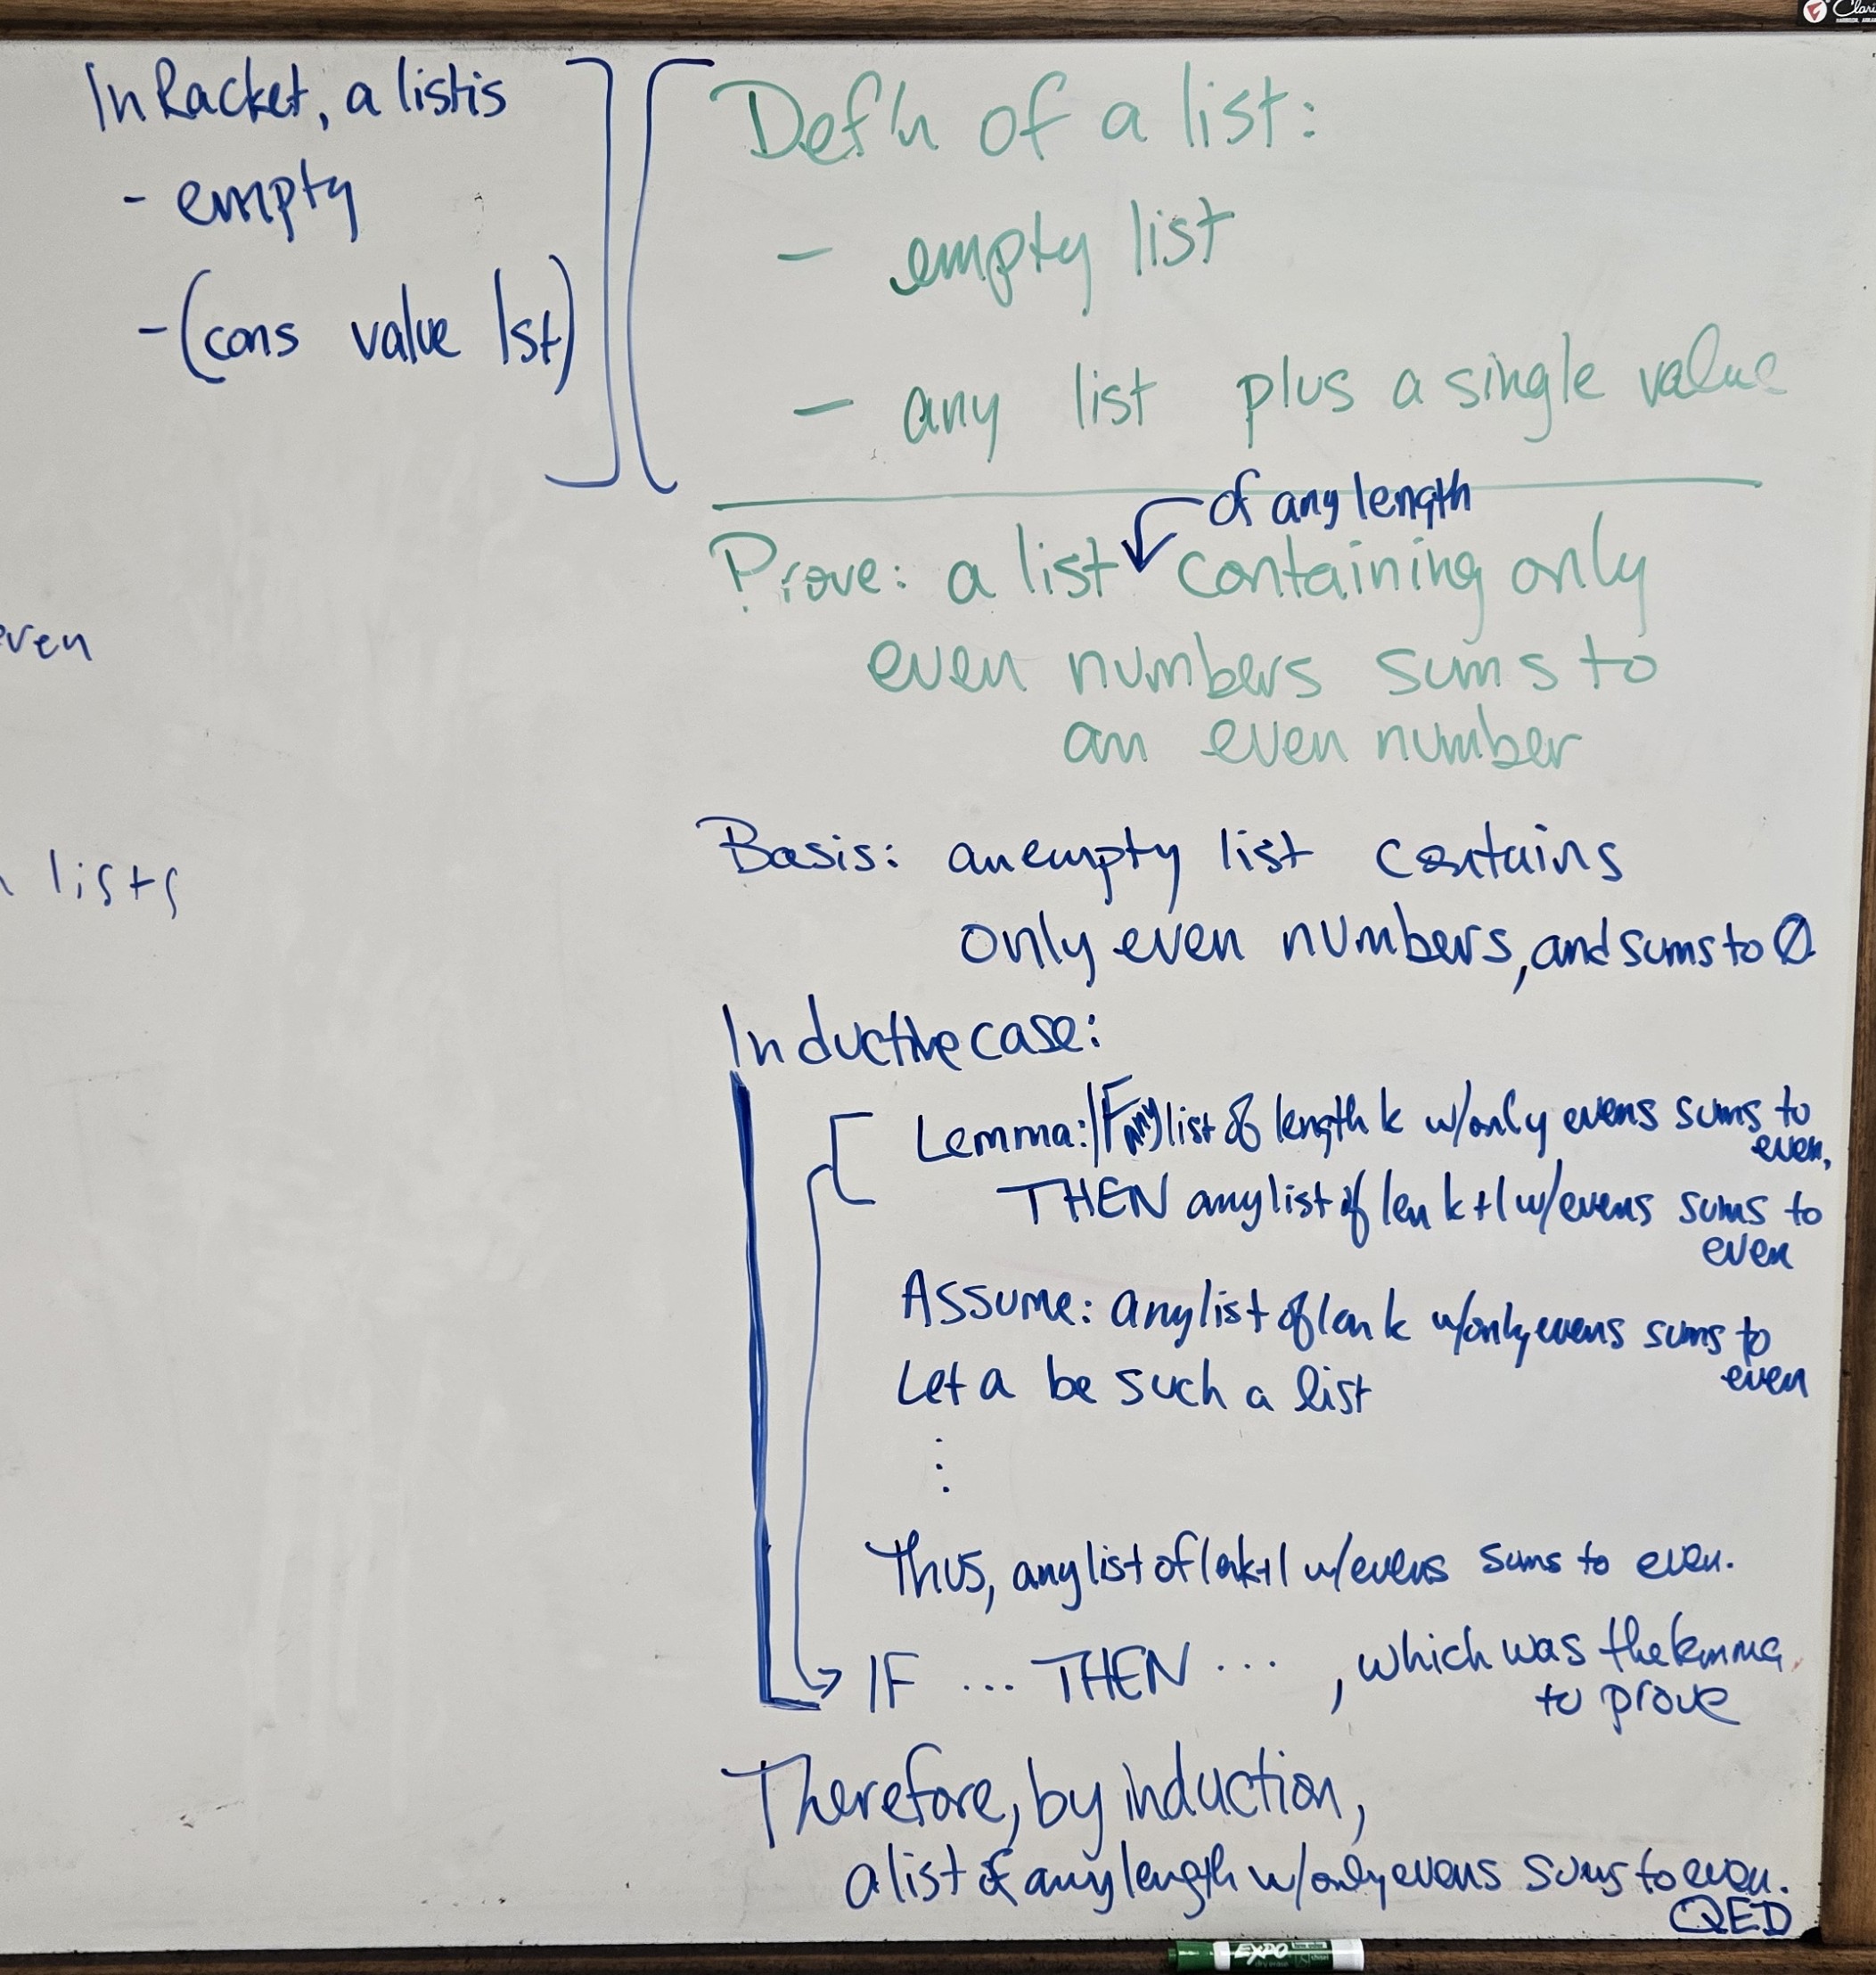 In Racket, a list is
- empty
- (cons value lst)
Def'n of a list:
- empty list
- any list plus a single value
of any length
Prove: a list containing only
even numbers sums to
an even number
even
lists
Basis: an empty list contains
only even numbers, and sums to 0
Inductive case:
Lemma: IF any list of length k w/only evens sums to
even,
THEN any list of len k+1 w/evens sums to
even
Assume: any list of len k w/only evens sums to
even
Let a be such a list
⋮
Thus, any list of len k+1 w/evens sums to even.
IF ... THEN ..., which was the lemma
to prove
Therefore, by induction,
a list of any length w/only evens sums to even.
QED
EXPO